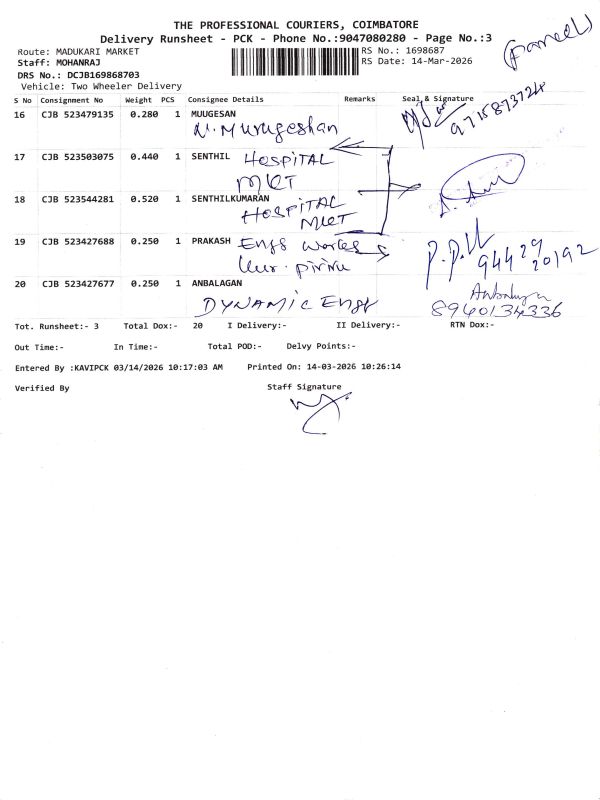 THE PROFESSIONAL COURIERS, COIMBATORE
Delivery Runsheet - PCK - Phone No.:9047080280 - Page No.:3
(Parcel)
Route: MADUKARI MARKET RS No.: 1698687
Staff: MOHANRAJ RS Date: 14-Mar-2026
DRS No.: DCJB169868703
Vehicle: Two Wheeler Delivery
S No Consignment No Weight PCS Consignee Details Remarks Seal & Signature
16 CJB 523479135 0.280 1 MUUGESAN
N. Murugeshan 9715873724
17 CJB 523503075 0.440 1 SENTHIL HOSPITAL
MKT
18 CJB 523544281 0.520 1 SENTHILKUMARAN
HOSPITAL
MKT
19 CJB 523427688 0.250 1 PRAKASH Engg works
94429
20192
20 CJB 523427677 0.250 1 ANBALAGAN
DYNAMIC Engg 8940134336
Tot. Runsheet:- 3 Total Dox:- 20 I Delivery:- II Delivery:- RTN Dox:-
Out Time:- In Time:- Total POD:- Delvy Points:-
Entered By :KAVIPCK 03/14/2026 10:17:03 AM Printed On: 14-03-2026 10:26:14
Verified By Staff Signature